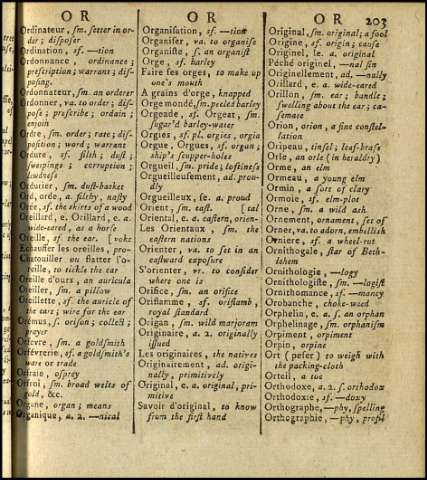 OR
Ordinateur, ſm. ſetter in or-
der; diſpoſer
Ordination, ſf. —tion
Ordonnance, ordinance;
preſcription; warrant; diſ-
poſing
Ordonnateur, ſm. an orderer
Ordonner, va. to order; diſ-
poſe; preſcribe; ordain;
enjoin
Ordre, ſm. order; rate; diſ-
poſition; word; warrant
Ordure, ſf. filth; duſt;
ſweepings; corruption;
lewdneſs
Ordurier, ſm. duſt-basket
Ord, orde, a. filthy, naſty
Orée, ſf. the skirts of a wood
Oreillard, e. Orillard, e. a.
wide-eared, as a horſe
Oreille, ſf. the ear. [yoke
Echauffer les oreilles, pro-
Chatouiller ou flatter l'o-
reille, to tickle the ear
Oreille d'ours, an auricula
Oreiller, ſm. a pillow
Oreillette, ſf. the auricle of
the ear; wire for the ear
Orémus, ſ. oriſon; collect;
prayer
Orfevre, ſm. a goldſmith
Orfévrerie, ſf. a goldſmith's
ware or trade
Orfraie, oſpray
Orfroi, ſm. broad welts of
gold, &c.
Organe, organ; means
Organique, a. 2. —nical
OR
Organiſation, ſf. —tion
Organiſer, va. to organiſe
Organiſte, ſ. an organiſt
Orge, ſf. barley
Faire ſes orges, to make up
one's mouth
A grains d'orge, knapped
Orge mondé, ſm. peeled barley
Orgeade, ſf. Orgeat, ſm.
ſugar'd barley-water
Orgies, ſf. pl. orgies, orgia
Orgue, Orgues, ſf. organ;
ship's ſcupper-holes
Orgueil, ſm. pride; loftineſs
Orgueilleuſement, ad. prou-
dly
Orgueilleux, ſe. a. proud
Orient, ſm. eaſt. [tal
Oriental, e. a. eaſtern, orien-
Les Orientaux, ſm. the
eaſtern nations
Orienter, va. to ſet in an
eaſtward expoſure
S'orienter, vr. to conſider
where one is
Orifice, ſm. an orifice
Oriflamme, ſf. oriflamb,
royal ſtandard
Origan, ſm. wild marjoram
Originaire, a. 2. originally
iſſued
Les originaires, the natives
Originairement, ad. origi-
nally, primitively
Original, e. a. original, pri-
mitive
Savoir d'original, to know
from the firſt hand
OR 203
Original, ſm. original; a fool
Origine, ſf. origin; cauſe
Originel, le. a. original
Péché originel, —nal ſin
Originellement, ad. —nally
Orillard, e. a. wide-eared
Orillon, ſm. ear; handle;
ſwelling about the ear; ca-
ſemate
Orion, orion, a fine conſtel-
lation
Oripeau, tinſel; leaf-braſs
Orle, an orle (in heraldry)
Orme, an elm
Ormeau, a young elm
Ormin, a ſort of clary
Ormoie, ſf. elm-plot
Orne, ſm. a wild ash
Ornement, ornament, ſet of
Orner, va. to adorn, embelliſh
Orniere, ſf. a wheel-rut
Ornithogale, ſtar of Beth-
lehem
Ornithologie, —logy
Ornithologiſte, ſm. —logiſt
Ornithomance, ſf. —mancy
Orobanche, choke-weed
Orphelin, e. a. ſ. an orphan
Orphelinage, ſm. orphaniſm
Orpiment, orpiment
Orpin, orpine
Ort (peſer) to weigh with
the packing-cloth
Orteil, a toe
Orthodoxe, a. 2. ſ. orthodox
Orthodoxie, ſf. —doxy
Orthographe, —phy, ſpelling
Orthographie, —phy, profil